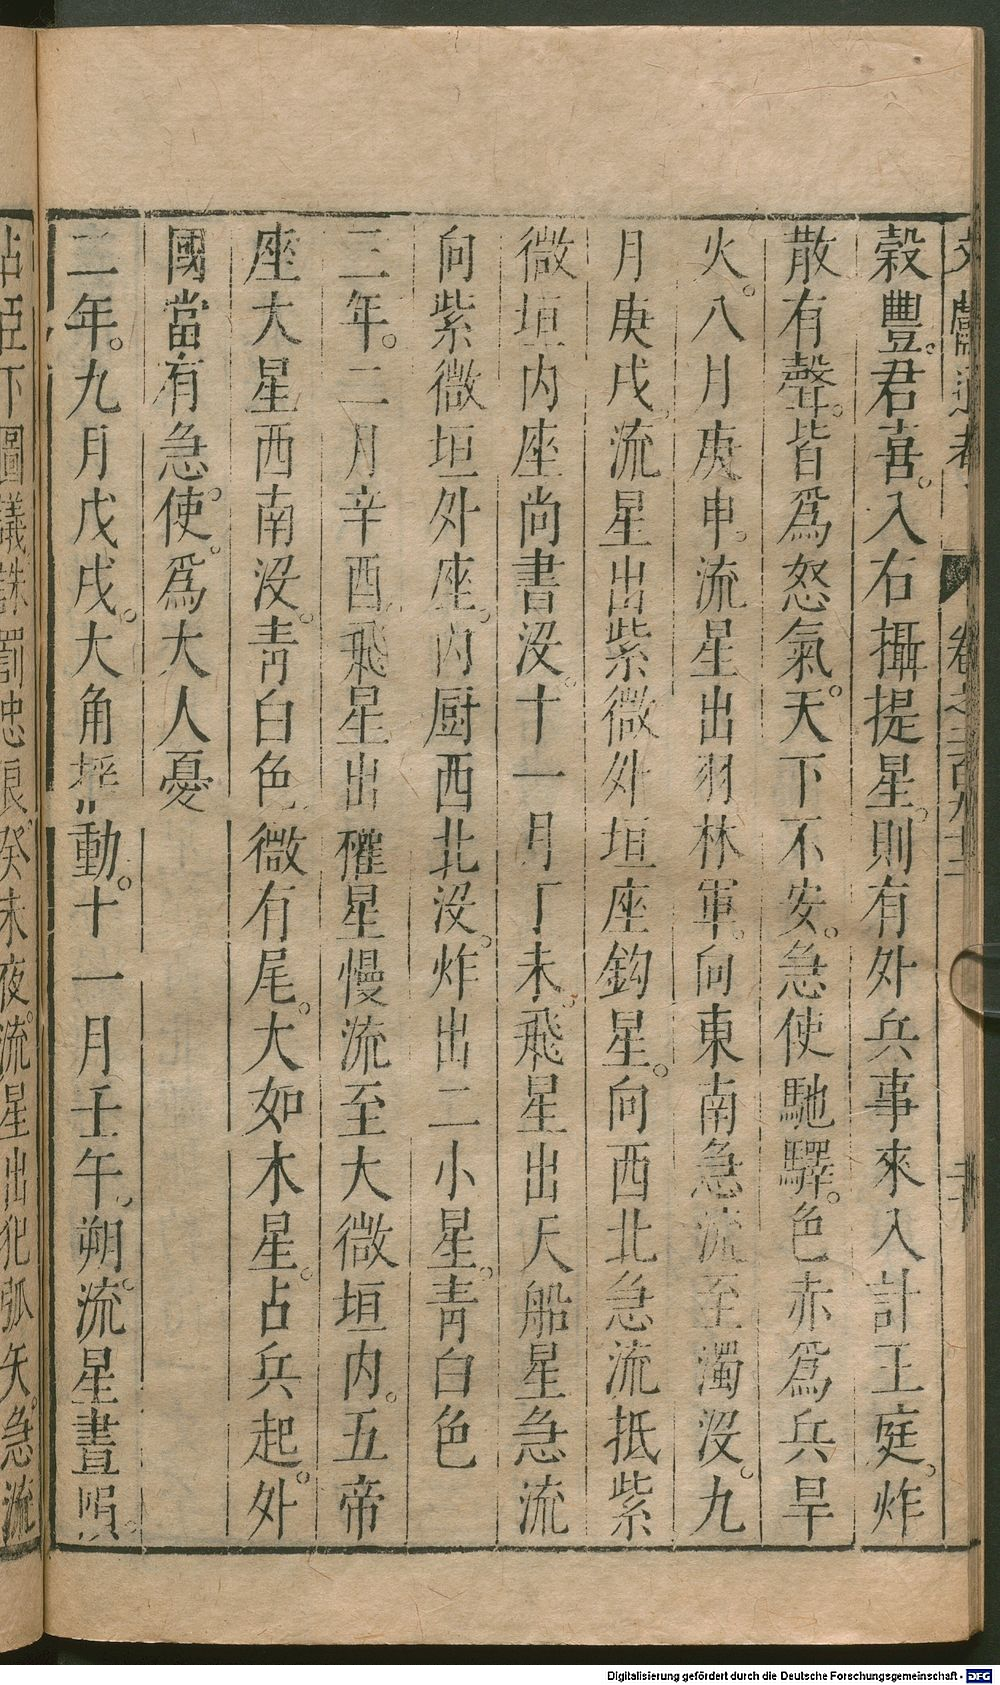 文獻通考 卷之二百九十二
穀豐。君喜。入右攝提星。則有外兵事來入計王庭。炸
散有聲。皆爲怒氣。天下不安。急使馳驛。色赤爲兵旱
火。八月庚申。流星出羽林軍。向東南急流至濁没。九
月庚戌。流星出紫微外垣座鈎星。向西北急流抵紫
微垣内座尚書没。十一月丁未。飛星出天船星急流
向紫微垣外座。内厨西北没。炸出二小星。青白色
三年。二月辛酉。飛星出權星慢流至大微垣内。五帝
座大星西南没。青白色。微有尾。大如木星。占兵起。外
國當有急使。爲大人憂
二年。九月戊戌。大角動。十一月壬午。朔。流星晝隕。
占臣下圖議誅罰忠良。癸未夜。流星出犯弧矢。急流
Digitalisierung gefördert durch die Deutsche Forschungsgemeinschaft - DFG